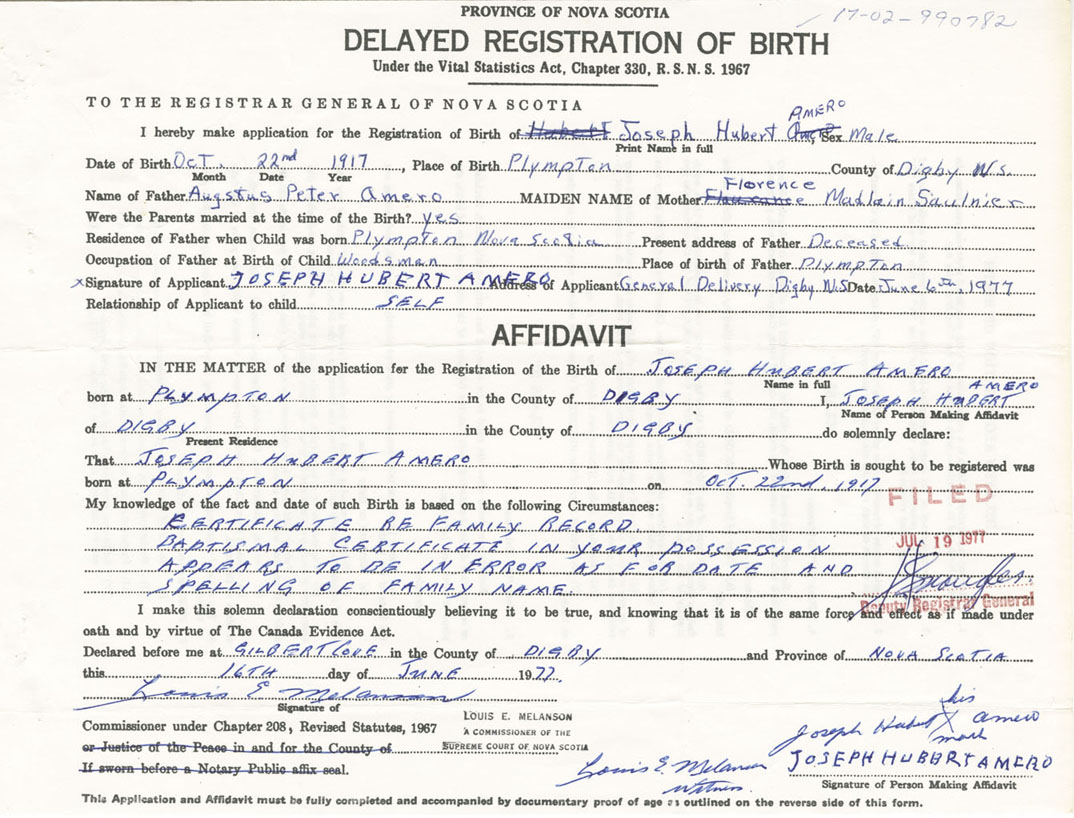 PROVINCE OF NOVA SCOTIA
17-02-990782
DELAYED REGISTRATION OF BIRTH
Under the Vital Statistics Act, Chapter 330, R. S. N. S. 1967
TO THE REGISTRAR GENERAL OF NOVA SCOTIA
AMERO
I hereby make application for the Registration of Birth of Joseph Hubert Sex Male
Print Name in full
Date of Birth Oct. 22nd 1917, Place of Birth Plympton County of Digby N.S.
Month Date Year
Florence
Name of Father Augstus Peter Amero MAIDEN NAME of Mother Madlain Saulnier
Were the Parents married at the time of the Birth? yes
Residence of Father when Child was born Plympton Nova Scotia Present address of Father Deceased
Occupation of Father at Birth of Child Woodsman Place of birth of Father Plympton
x Signature of Applicant JOSEPH HUBERT AMERO Address of Applicant General Delivery Digby N.S Date June 6th, 1977
Relationship of Applicant to child SELF
AFFIDAVIT
IN THE MATTER of the application for the Registration of the Birth of JOSEPH HUBERT AMERO
Name in full AMERO
born at PLYMPTON in the County of DIGBY I, JOSEPH HUBERT
Name of Person Making Affidavit
of DIGBY in the County of DIGBY do solemnly declare:
Present Residence
That JOSEPH HUBERT AMERO Whose Birth is sought to be registered was
born at PLYMPTON on OCT. 22nd, 1917
My knowledge of the fact and date of such Birth is based on the following Circumstances:
FILED
CERTIFICATE RE FAMILY RECORD.
BAPTISMAL CERTIFICATE IN YOUR POSSESSION
JUL 19 1977
APPEARS TO BE IN ERROR AS FOR DATE AND
SPELLING OF FAMILY NAME.
Deputy Registrar General
I make this solemn declaration conscientiously believing it to be true, and knowing that it is of the same force and effect as if made under
oath and by virtue of The Canada Evidence Act.
Declared before me at GILBERT COVE in the County of DIGBY and Province of NOVA SCOTIA
this 16TH day of JUNE 1977.
Louis E Melanson
Signature of
Commissioner under Chapter 208, Revised Statutes, 1967
or Justice of the Peace in and for the County of
If sworn before a Notary Public affix seal.
LOUIS E. MELANSON
A COMMISSIONER OF THE
SUPREME COURT OF NOVA SCOTIA
his
Joseph Hubert X Amero
mark
Louis E. Melanson
Witness.
JOSEPH HUBERT AMERO
Signature of Person Making Affidavit
This Application and Affidavit must be fully completed and accompanied by documentary proof of age as outlined on the reverse side of this form.